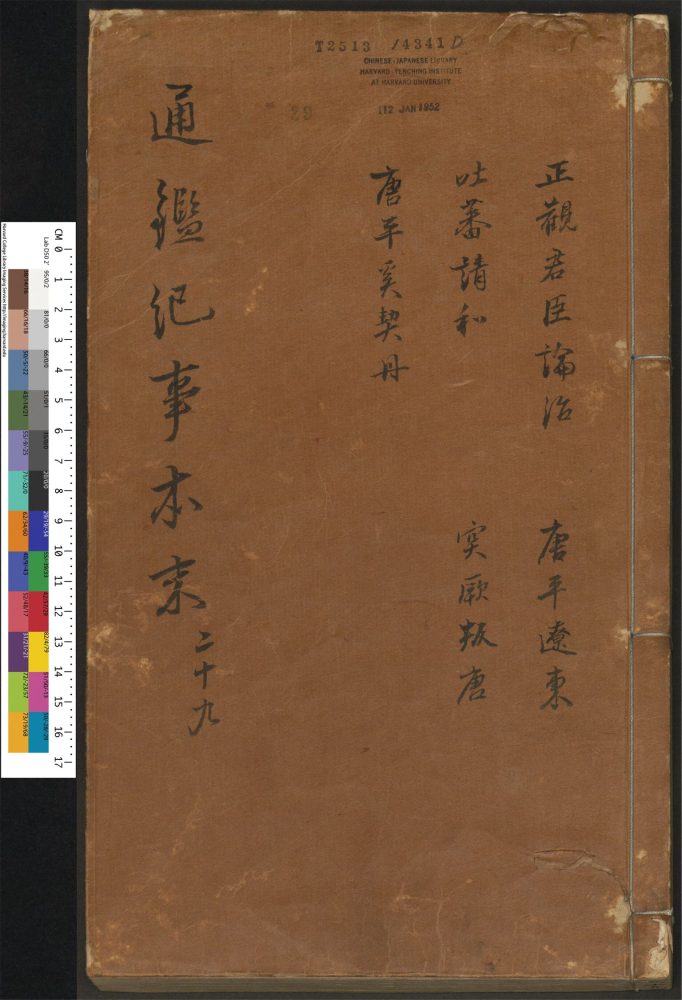 T2513 /4341D
CHINESE-JAPANESE LIBRARY
HARVARD-YENCHING INSTITUTE
AT HARVARD UNIVERSITY
112 JAN 1952
29
正觀君臣論治
唐平遼東
吐蕃請和
突厥叛唐
唐平奚契丹
通鑑紀事本末
二十九
CM 0 1 2 3 4 5 6 7 8 9 10 11 12 13 14 15 16 17